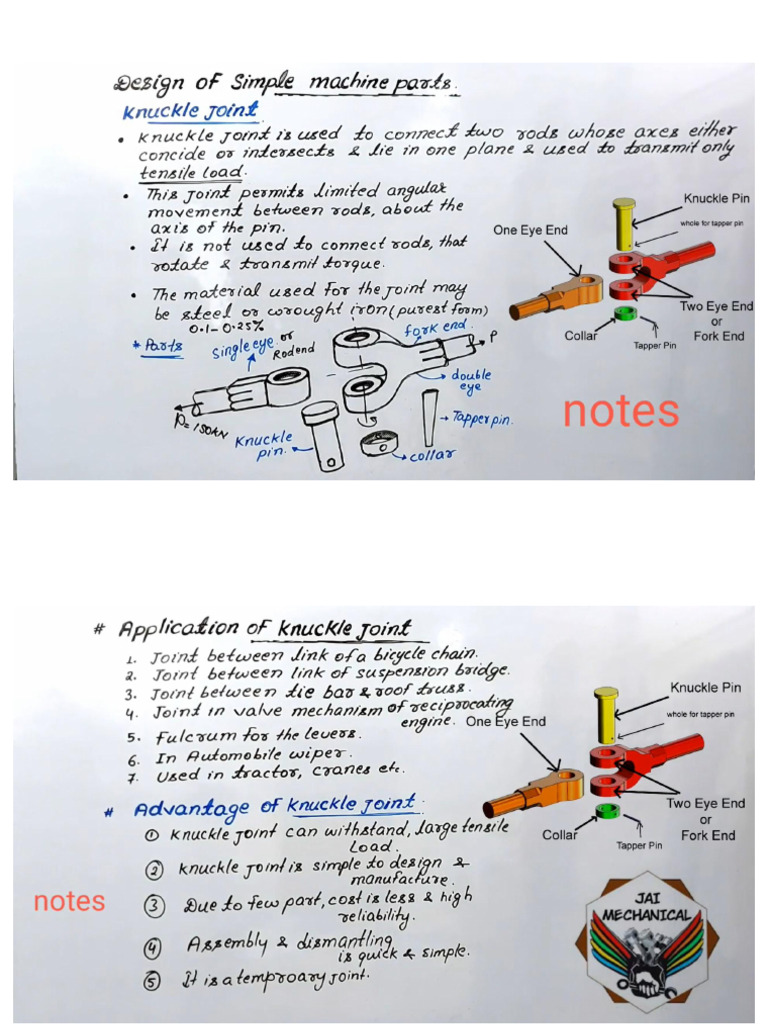 Design of Simple machine parts.
Knuckle Joint
• Knuckle Joint is used to connect two rods whose axes either
concide or intersects & lie in one plane & used to transmit only
tensile load.
• This joint permits limited angular
movement between rods, about the
axis of the pin.
• It is not used to connect rods, that
rotate & transmit torque.
• The material used for the joint may
be steel or wrought iron (purest form)
0.1-0.25%
* Parts
Single eye or
Rod end
fork end.
P
double
eye
P=150kN
Knuckle
pin.
Tapper pin.
collar
Knuckle Pin
whole for tapper pin
One Eye End
Two Eye End
or
Fork End
Collar
Tapper Pin
notes
# Application of Knuckle Joint
1. Joint between link of a bicycle chain.
2. Joint between link of suspension bridge.
3. Joint between tie bar & roof truss.
4. Joint in valve mechanism of reciprocating
engine.
5. Fulcrum for the levers.
6. In Automobile wiper.
7. Used in tractor, cranes etc.
Knuckle Pin
whole for tapper pin
One Eye End
Two Eye End
or
Fork End
Collar
Tapper Pin
# Advantage of Knuckle Joint.
① Knuckle joint can withstand, large tensile
Load.
② Knuckle joint is simple to design &
manufacture.
③ Due to few part, cost is less & high
reliability.
④ Assembly & dismantling
is quick & simple.
⑤ It is a temproary joint.
notes
JAI
MECHANICAL